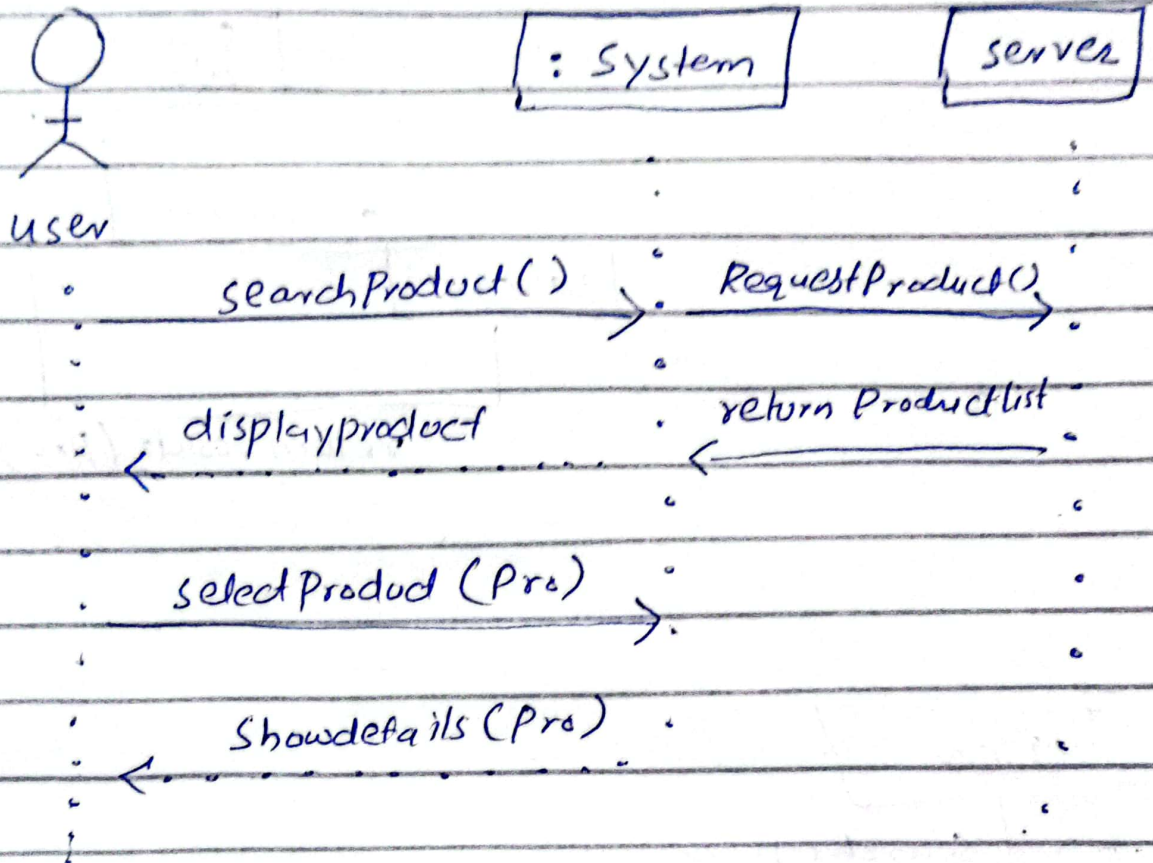 : System
server
user
searchProduct()
RequestProduct()
displayproduct
return Productlist
selectProduct (Pro)
Showdetails (Pro)